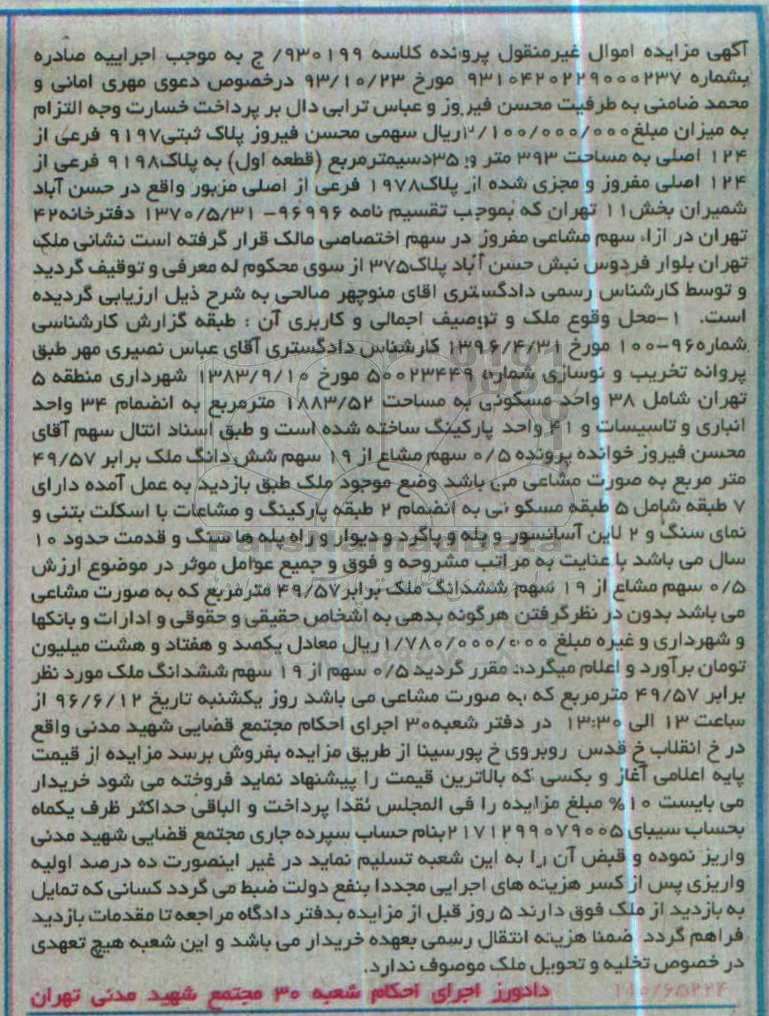 آگهی مزایده اموال غیرمنقول پرونده کلاسه ۹۳۰۱۹۹/ ج به موجب اجراییه صادره
بشماره ۹۳۱۰۴۲۰۲۲۹۰۰۰۲۳۷ مورخ ۹۳/۱۰/۲۳ درخصوص دعوی مهری امانی و
محمد ضامنی به طرفیت محسن فیروز و عباس ترابی دال بر پرداخت خسارت وجه التزام
به میزان مبلغ ۲/۱۰۰/۰۰۰/۰۰۰ریال سهمی محسن فیروز پلاک ثبتی ۹۱۹۷ فرعی از
۱۲۴ اصلی به مساحت ۳۹۳ متر و ۳۵دسیمترمربع (قطعه اول) به پلاک۹۱۹۸ فرعی از
۱۲۴ اصلی مفروز و مجزی شده از پلاک۱۹۷۸ فرعی از اصلی مزبور واقع در حسن آباد
شمیران بخش۱۱ تهران که بموجب تقسیم نامه ۹۶۹۹۶- ۱۳۷۰/۵/۳۱ دفترخانه۴۲
تهران در ازاء سهم مشاعی مفروز در سهم اختصاصی مالک قرار گرفته است نشانی ملک
تهران بلوار فردوس نبش حسن آباد پلاک۳۷۵ از سوی محکوم له معرفی و توقیف گردید
و توسط کارشناس رسمی دادگستری اقای منوچهر صالحی به شرح ذیل ارزیابی گردیده
است. ۱-محل وقوع ملک و توصیف اجمالی و کاربری آن : طبقه گزارش کارشناسی
شماره۹۶-۱۰۰ مورخ ۱۳۹۶/۴/۳۱ کارشناس دادگستری آقای عباس نصیری مهر طبق
پروانه تخریب و نوسازی شماره ۵۰۰۲۳۴۴۹ مورخ ۱۳۸۳/۹/۱۰ شهرداری منطقه ۵
تهران شامل ۳۸ واحد مسکونی به مساحت ۱۸۸۳/۵۲ مترمربع به انضمام ۳۴ واحد
انباری و تاسیسات و ۴۱ واحد پارکینگ ساخته شده است و طبق اسناد انتال سهم آقای
محسن فیروز خوانده پرونده ۰/۵ سهم مشاع از ۱۹ سهم شش دانگ ملک برابر ۴۹/۵۷
متر مربع به صورت مشاعی می باشد وضع موجود ملک طبق بازدید به عمل آمده دارای
۷ طبقه شامل ۵ طبقه مسکونی به انضمام ۲ طبقه پارکینگ و مشاعات با اسکلت بتنی و
نمای سنگ و ۲ لاین آسانسور و پله و پاگرد و دیوار و راه پله ها سنگ و قدمت حدود ۱۰
سال می باشد با عنایت به مراتب مشروحه و فوق و جمیع عوامل موثر در موضوع ارزش
۰/۵ سهم مشاع از ۱۹ سهم ششدانگ ملک برابر۴۹/۵۷ مترمربع که به صورت مشاعی
می باشد بدون در نظرگرفتن هرگونه بدهی به اشخاص حقیقی و حقوقی و ادارات و بانکها
و شهرداری و غیره مبلغ ۱/۷۸۰/۰۰۰/۰۰۰ریال معادل یکصد و هفتاد و هشت میلیون
تومان برآورد و اعلام میگردد مقرر گردید ۰/۵ سهم از ۱۹ سهم ششدانگ ملک مورد نظر
برابر ۴۹/۵۷ مترمربع که به صورت مشاعی می باشد روز یکشنبه تاریخ ۹۶/۶/۱۲ از
ساعت ۱۳ الی ۱۳:۳۰ در دفتر شعبه۳۰ اجرای احکام مجتمع قضایی شهید مدنی واقع
در خ انقلاب خ قدس روبروی خ پورسینا از طریق مزایده بفروش برسد مزایده از قیمت
پایه اعلامی آغاز و بکسی که بالاترین قیمت را پیشنهاد نماید فروخته می شود خریدار
می بایست ۱۰% مبلغ مزایده را فی المجلس نقدا پرداخت و الباقی حداکثر ظرف یکماه
بحساب سیبای ۲۱۷۱۲۹۹۰۷۹۰۰۵بنام حساب سپرده جاری مجتمع قضایی شهید مدنی
واریز نموده و قبض آن را به این شعبه تسلیم نماید در غیر اینصورت ده درصد اولیه
واریزی پس از کسر هزینه های اجرایی مجددا بنفع دولت ضبط می گردد کسانی که تمایل
به بازدید از ملک فوق دارند ۵ روز قبل از مزایده بدفتر دادگاه مراجعه تا مقدمات بازدید
فراهم گردد ضمنا هزینه انتقال رسمی بعهده خریدار می باشد و این شعبه هیچ تعهدی
در خصوص تخلیه و تحویل ملک موصوف ندارد.
۱۱۰/۶۵۲۲۴ دادورز اجرای احکام شعبه ۳۰ مجتمع شهید مدنی تهران
ParsNamadData